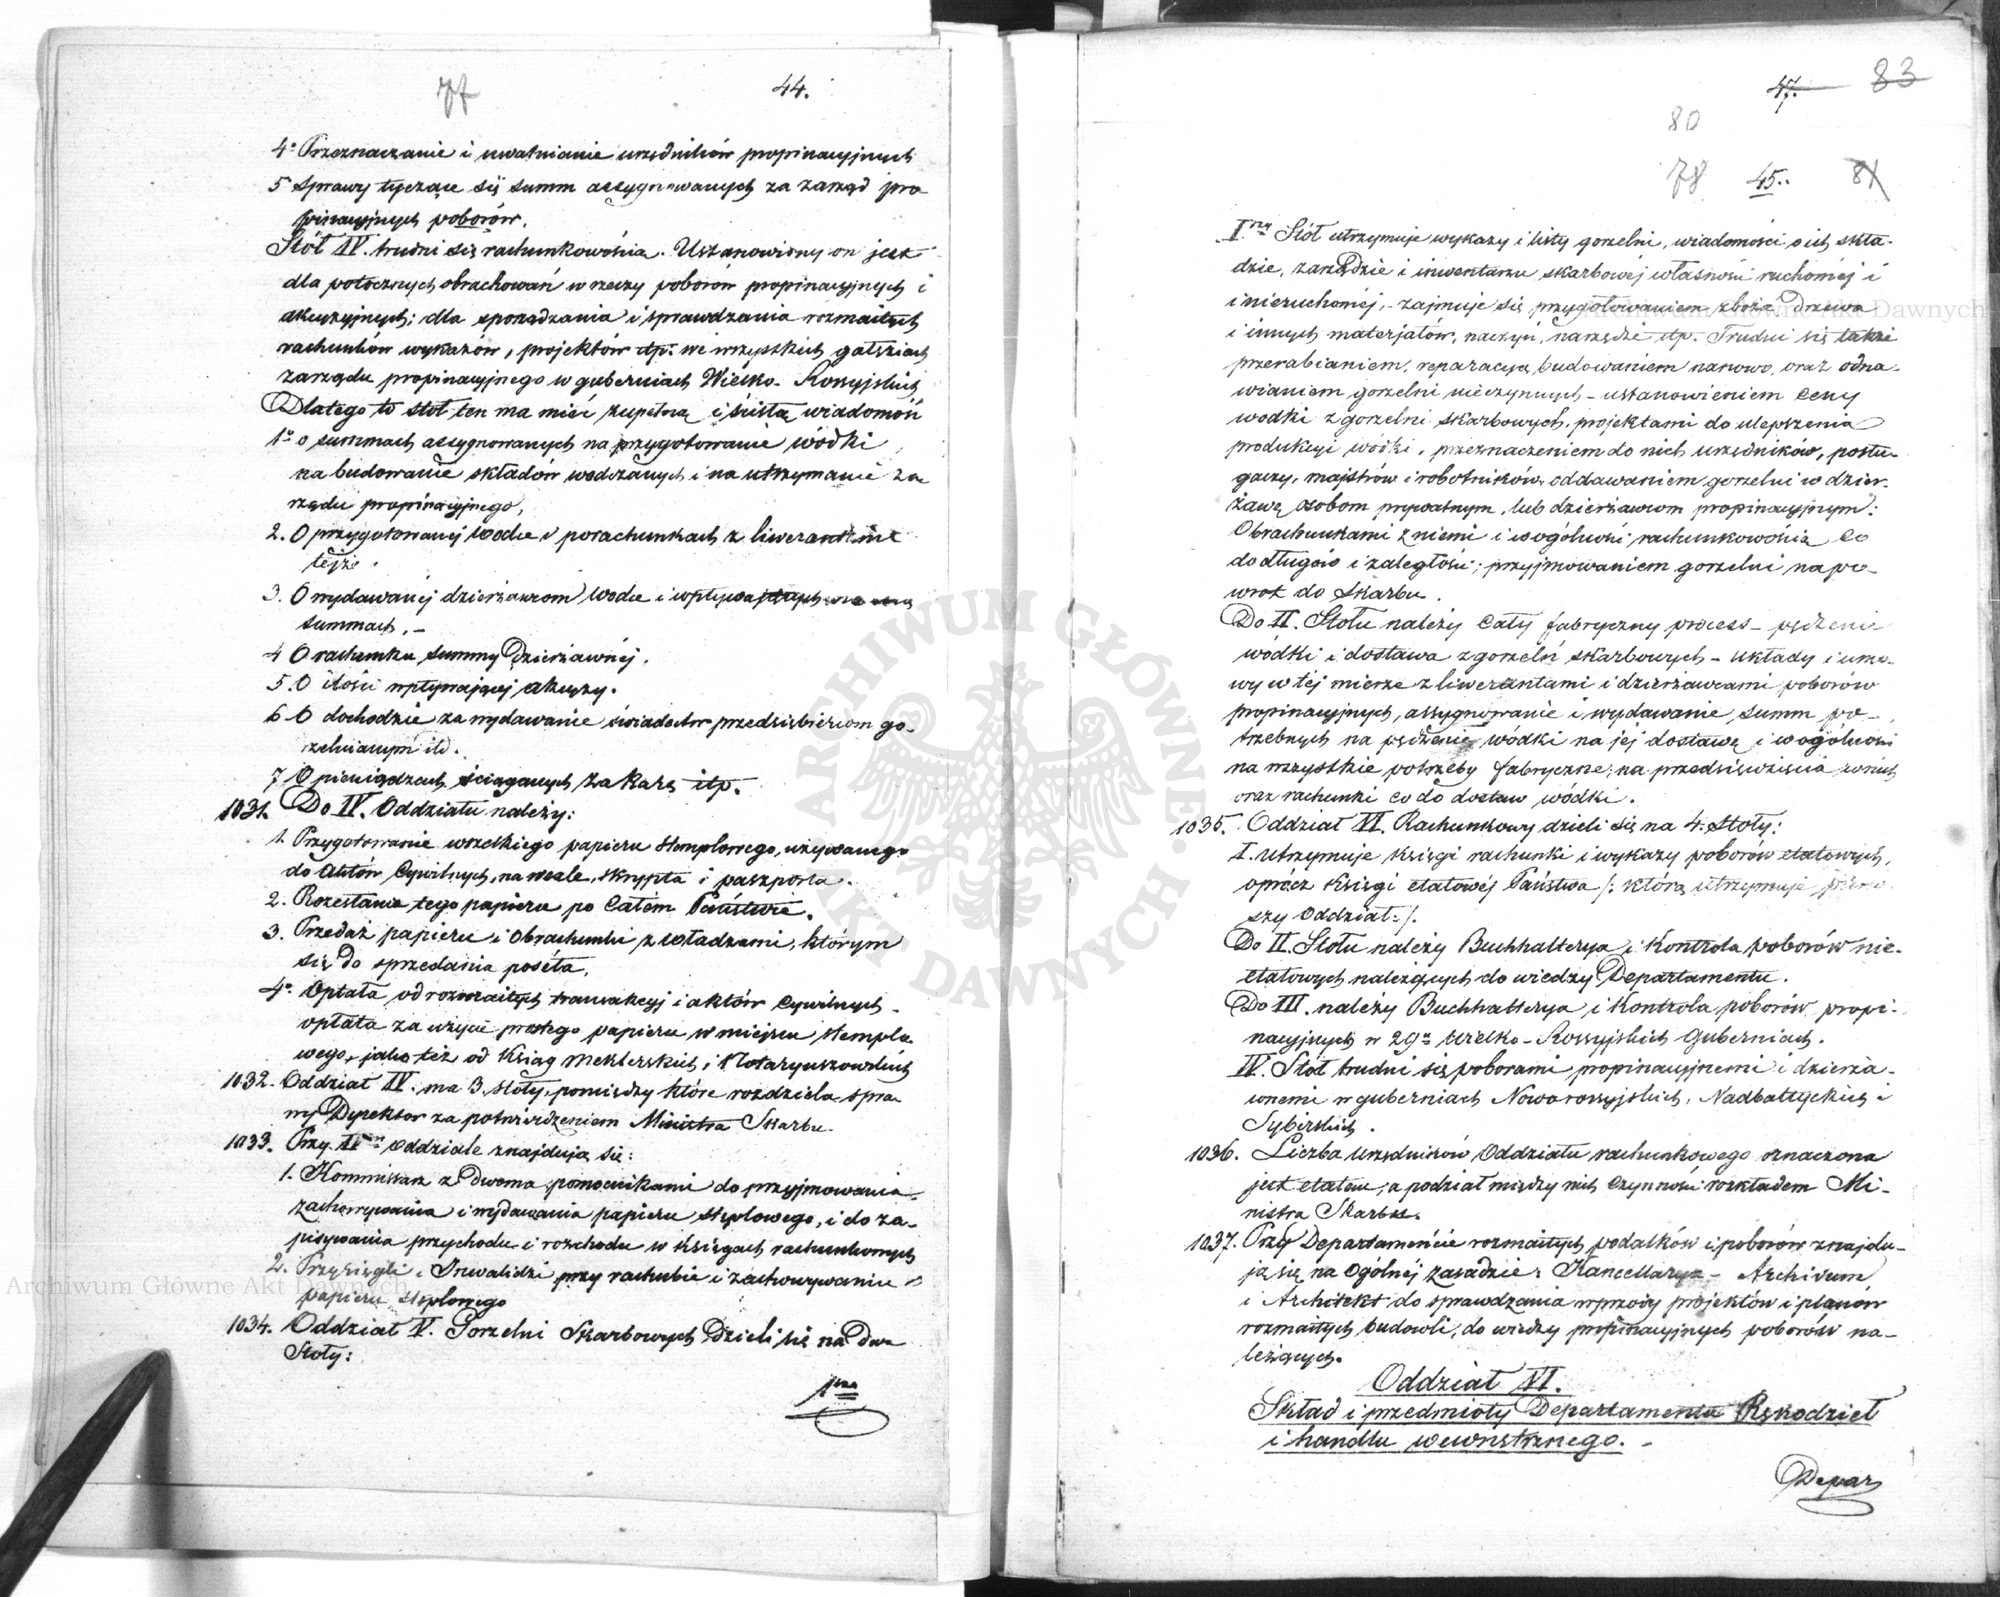 77 44.
4º Przeznaczanie i uwalnianie urzędników propinacyjnych
5 Sprawy tyczące się summ assygnowanych za zarząd pro
pinacyjnych poborów.
Stół IV. trudni się rachunkowością. Ustanowiony on jest
dla potocznych obrachowań w rzeczy poborów propinacyjnych i
akcyzyjnych; dla sporządzania i sprawdzania rozmaitych
rachunków wykazów, projektów itp. we wszystkich gałęziach
zarządu propinacyjnego w guberniach Wielko-Rossyjskich
Dlatego to stół ten ma mieć zupełną i ścisłą wiadomość
1º o summach assygnowanych na przygotowanie wódki
na budowanie składów wodczanych i na utrzymanie za
rządu propinacyjnego,
2. O przygotowanej wodce i porachunkach z liwerantami
tejże.
3. O wydawanej dzierżawcom wodce i wpływających
summach, –
4 O rachunku summy Dzierżawnej.
5. O ilości wpływającej akcyzy.
6 O dochodzie za wydawanie świadectw przedsiębiercom go-
rzelnianym itd.
7 O pieniądzach ściąganych za karę itp.
1031. Do IV. Oddziału należy:
1. Przygotowanie wszelkiego papieru stemplowego, używanego
do aktów Cywilnych, na wexle, skrypta i paszporta.
2. Rozesłanie tego papieru po całém Państwie.
3. Przedaż papieru i Obrachunki z władzami, którym
się do sprzedania poséła,
4º Opłata od rozmaitych tranzakcyj i aktów Cywilnych –
opłata za użycie prostego papieru w miejscu stemplo
wego, jako też od Ksiąg Meklerskich i Notaryuszowskich
1032. Oddział IV. ma 3. stoły, pomiędzy które rozdziela spra
wy Dyrektor za potwierdzeniem Ministra Skarbu.
1033. Przy IVm Oddziale znajdują się:
1. Kommissarz z Dwoma pomocnikami do przyjmowania,
zachowywania i wydawania papieru steplowego, i do za-
pisywania przychodu i rozchodu w księgach rachunkowych
2. Przysięgli i Inwalidzi przy rachubie i zachowywaniu
papieru steplowego
1034. Oddział V. Gorzelni Skarbowych Dzieli się na Dwa
Stoły:
1wszy
47. 83
80
78 45.. 81
Iwszy Stół utrzymuje wykazy i listy gorzelni, wiadomości o ich skła-
dzie, zarządzie i inwentarzu skarbowéj własności ruchoméj i
i nieruchoméj, – zajmuje się przygotowaniem zboża Drzewa
i innych materjałów, naczyń, narzędzi itp. Trudni się także
przerabianiem, reparacyą, budowaniem nanowo, oraz odna-
wianiem gorzelni nieczynnych – ustanowieniem ceny
wodki z gorzelni skarbowych, projektami do ulepszenia
produkcyi wódki, przeznaczeniem do nich urzędników, posłu-
gaczy, majstrów i robotników, oddawaniem gorzelni w dzier-
żawę osobom prywatnym, lub dzierżawcom propinacyjnym:
Obrachunkami z niemi i w ogólności rachunkowością co
do długów i zaległości; przyjmowaniem gorzelni na po-
wrot do skarbu.
Do II. Stołu należy cały fabryczny process – pędzenie
wódki i dostawa z gorzelń skarbowych – układy i umo-
wy w téj mierze z liwerantami i dzierżawcami poborów
propinacyjnych, assygnowanie i wydawanie summ po-
trzebnych na pędzenie wódki na jéj dostawę i w ogólności
na wszystkie potrzeby fabryczne, na przedsięwzięcia
oraz rachunki co do dostaw wódki.
1035. Oddział VI. Rachunkowy dzieli się na 4. Stoły:
I. Utrzymuje księgi rachunki i wykazy poborów etatowych,
oprócz księgi etatowéj Państwa /: którą utrzymuje pierw
szy oddział :/.
Do II. Stołu należy Buchhalterya i Kontrola poborów nie-
etatowych należących do wiedzy Departamentu.
Do III. należy Buchhalterya i Kontrola poborów propi-
nacyjnych w 29u Wielko-Rossyjskich Guberniach.
IV. Stół trudni się poborami propinacyjnemi i dzierża-
wnemi w guberniach Noworossyjskich, Nadbałtyckich i
Sybirskich.
1036. Liczba urzędników Oddziału rachunkowego oznaczona
jest etatem, a podział między nich Czynności rozkładem Mi-
nistra Skarbu.
1037. Przy Departamencie rozmaitych podatków i poborów znajdu-
ją się na Ogólnéj zasadzie: Kancellarya – Archiwum
i Architekt do sprawdzania wprzódy projektów i planów
rozmaitych budowli, do wiedzy propinacyjnych poborów na-
leżących.
Oddział VI.
Skład i przedmioty Departamentu Rękodzieł
i handlu wewnętrznego. –
Depar